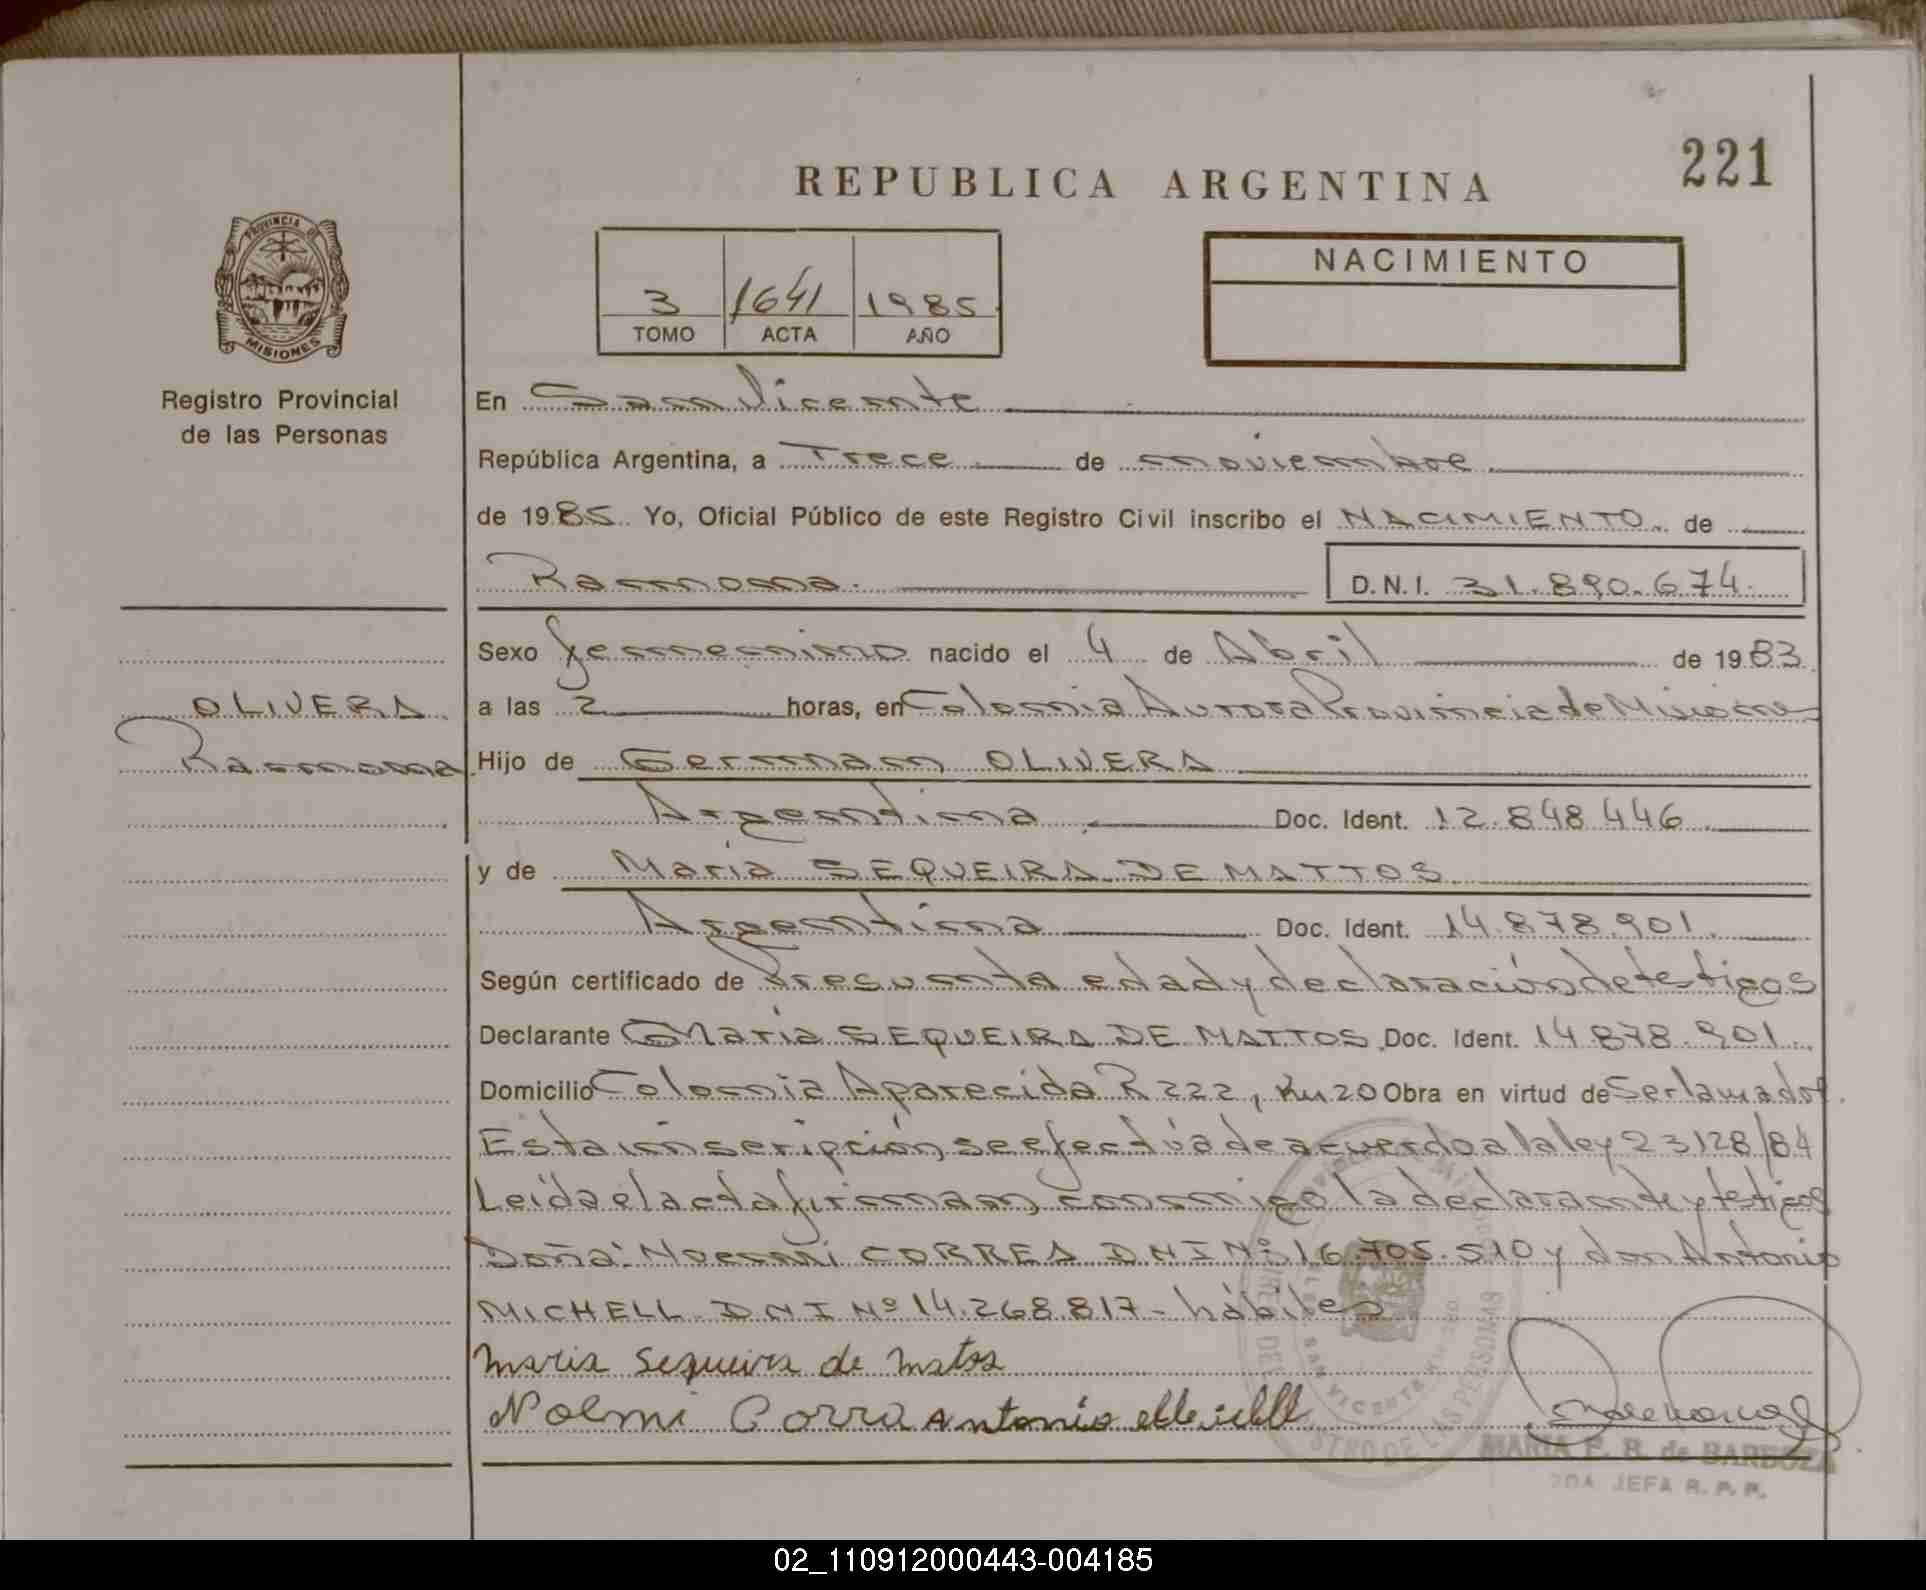 221
REPUBLICA ARGENTINA
PROVINCIA DE
MISIONES
Registro Provincial
de las Personas
NACIMIENTO
3 1641 1985
TOMO ACTA AÑO
En San Vicente
República Argentina, a Trece de noviembre
de 1985. Yo, Oficial Público de este Registro Civil inscribo el NACIMIENTO de
Ramona. D.N.I. 31.890.674.
Sexo femenino nacido el 4 de Abril de 1983
OLIVERA
Ramona
a las 2 horas, en Colonia Aurora Provincia de Misiones
Hijo de German OLIVERA
Argentina Doc. Ident. 12.848.446
y de María SEQUEIRA DE MATTOS
Argentina Doc. Ident. 14.878.901.
Según certificado de Presunta edad y declaración de testigos
Declarante María SEQUEIRA DE MATTOS. Doc. Ident. 14.878.901.
Domicilio Colonia Aparecida R 222, Km 20 Obra en virtud de Ser la madre.
Esta inscripción, se efectúa de acuerdo a la ley 23128/84
Leída el acta firman, conmigo la declarante y testigos
Doña: Noemi CORREA DNI Nº 16.705.510 y don Antonio
MICHELL DNI Nº 14.268.817- hábiles
maria sequeira de matos
Noemi Corra Antonio
SAN VICENTE
DE LAS PERSONAS
MARIA P. R. de BARBOZA
2DA JEFA R. P. P.
02_110912000443-004185